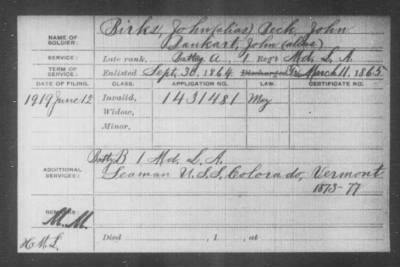 NAME OF SOLDIER: Birks, John (alias) Peck, John
Dankart, John (alias)
SERVICE: Late rank, Batty A, 1 Reg't Md. L. A.
TERM OF SERVICE: Enlisted Sept. 30, 1864 Discharged Tr. March 11, 1865
DATE OF FILING. CLASS. APPLICATION NO. LAW. CERTIFICATE NO.
1919 June 12 Invalid, 1431481 May
Widow,
Minor,
ADDITIONAL SERVICES: Batty B 1 Md. L. A.
Seaman U.S.S. Colorado, Vermont
1873-77
REMARKS:
M.M.
Died , 1 , at